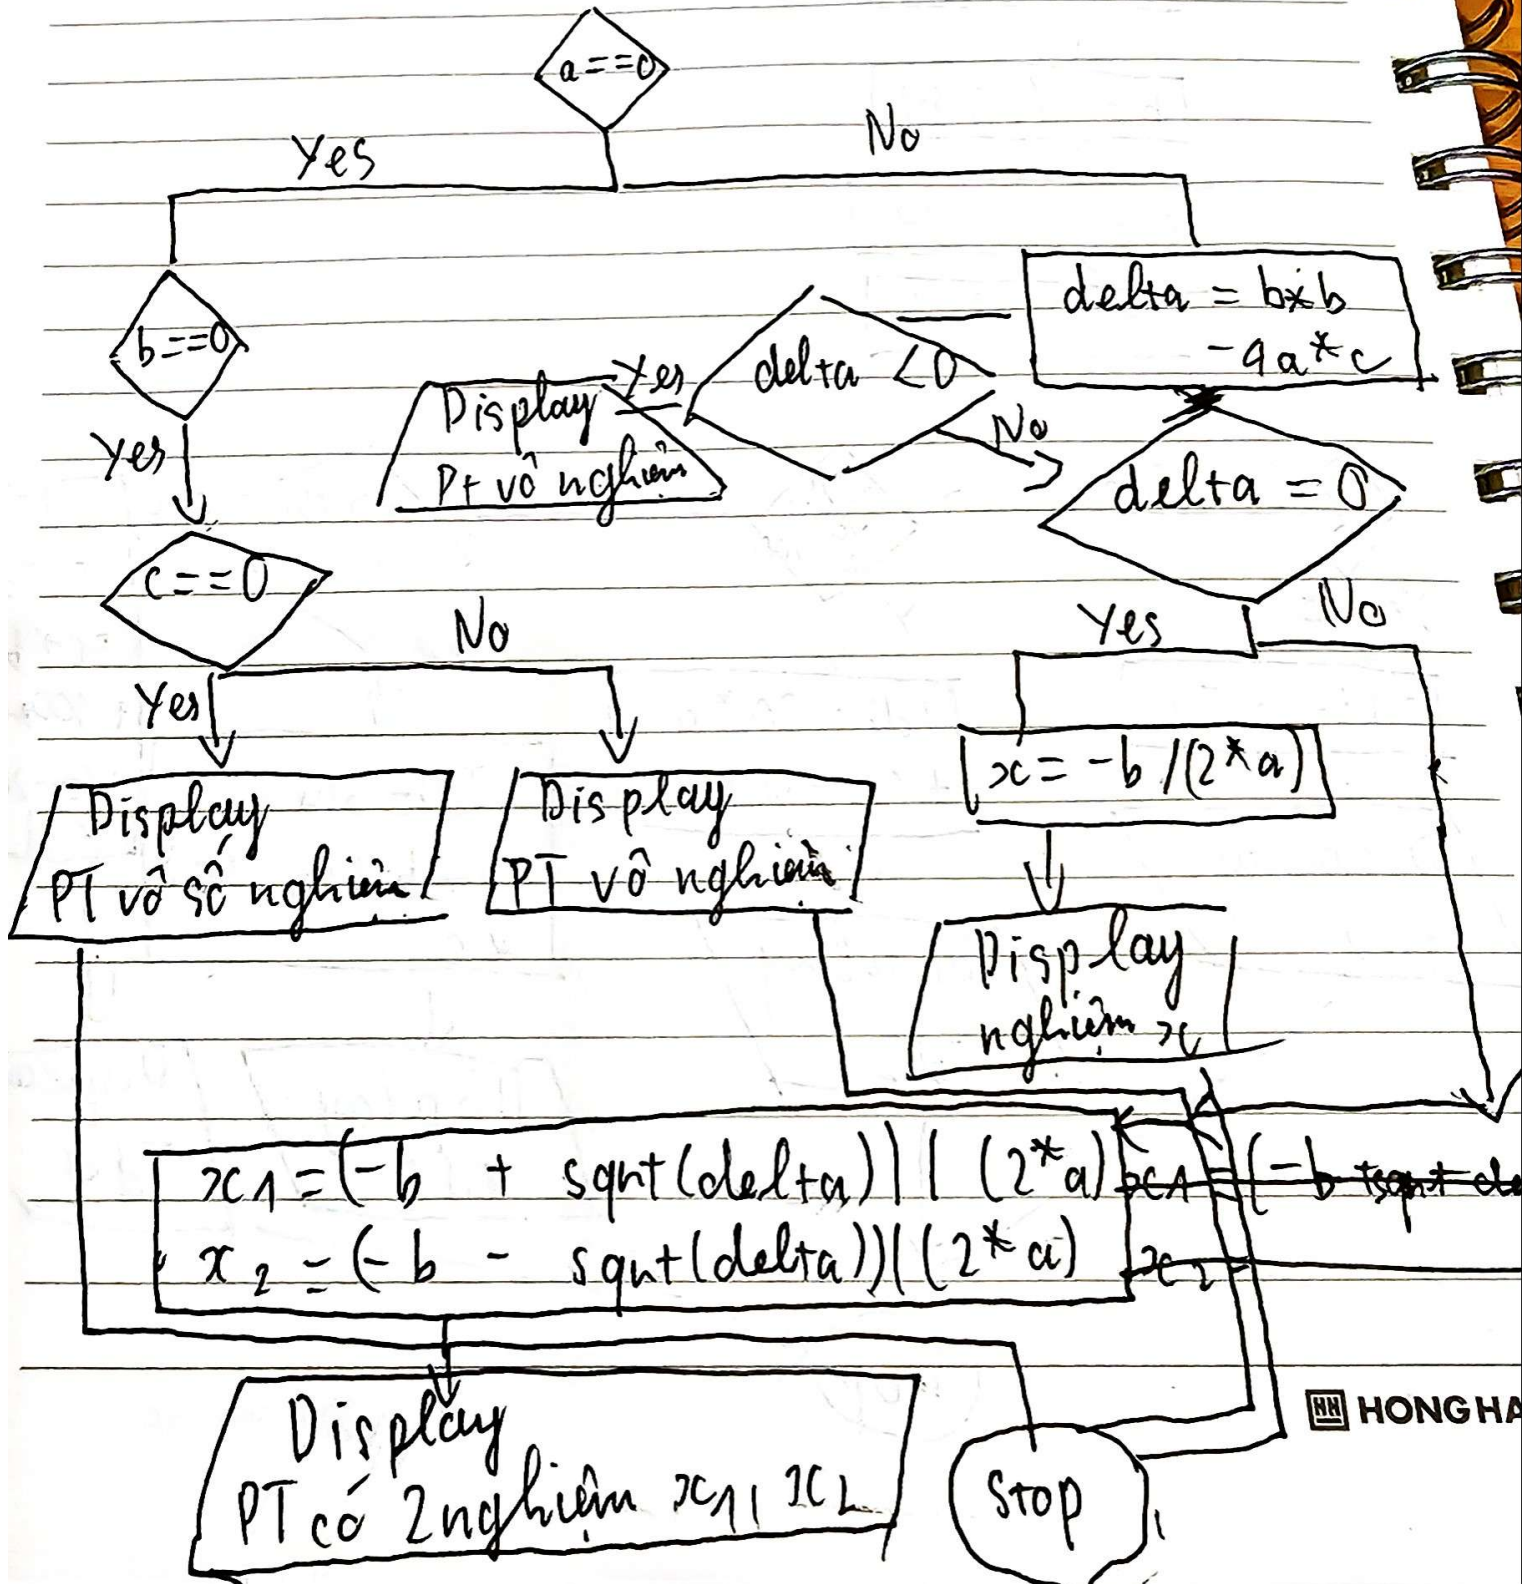 a==0
Yes
No
b==0
delta = b*b
-4a*c
delta <0
Yes
Display
Pt vô nghiệm
No
Yes
delta = 0
c==0
No
Yes
Yes
No
x = -b /(2*a)
Display
PT vô số nghiệm
Display
PT vô nghiệm
Display
nghiệm x
x1 = (-b + sqrt(delta)) / (2*a)
x1 = (-b + sqrt de
x2 = (-b - sqrt(delta)) / (2*a)
x2 =
Display
PT có 2 nghiệm x1, x2
Stop
HONG HA